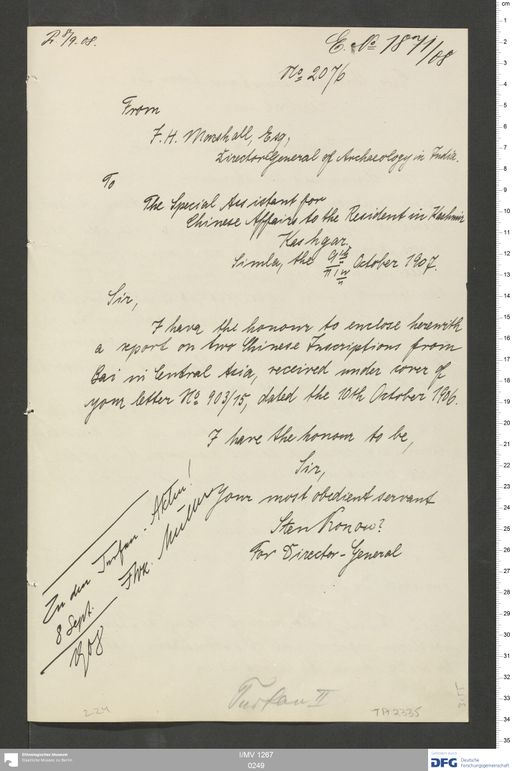 P. 8/9. 08.
E. No 1871/08
No 2076
From
F. H. Marshall, Esq,
Director General of Archaeology in India.
To
The Special Assistant for
Chinese Affairs to the Resident in Kashmir
Kashgar.
Simla, the October 1907.
Sir,
I have the honour to enclose herewith
a report on two Chinese Inscriptions from
Bai in Central Asia, received under cover of
your letter No 903/15, dated the 10th October 1906.
I have the honour to be,
Sir,
Your most obedient servant
Sten Konow?
For Director-General
Zu den Turfan-Akten!
8 Sept. FWK. Müller
1908
Turfan II
TA 2335
I/MV 1267
0249
Ethnologisches Museum
Staatliche Museen zu Berlin
DFG Deutsche
Forschungsgemeinschaft